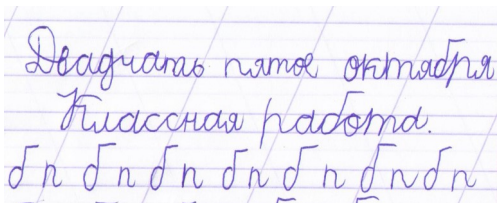 Двадчать пятое октября
Классная работа.
б п б п б п б п б п б п б п